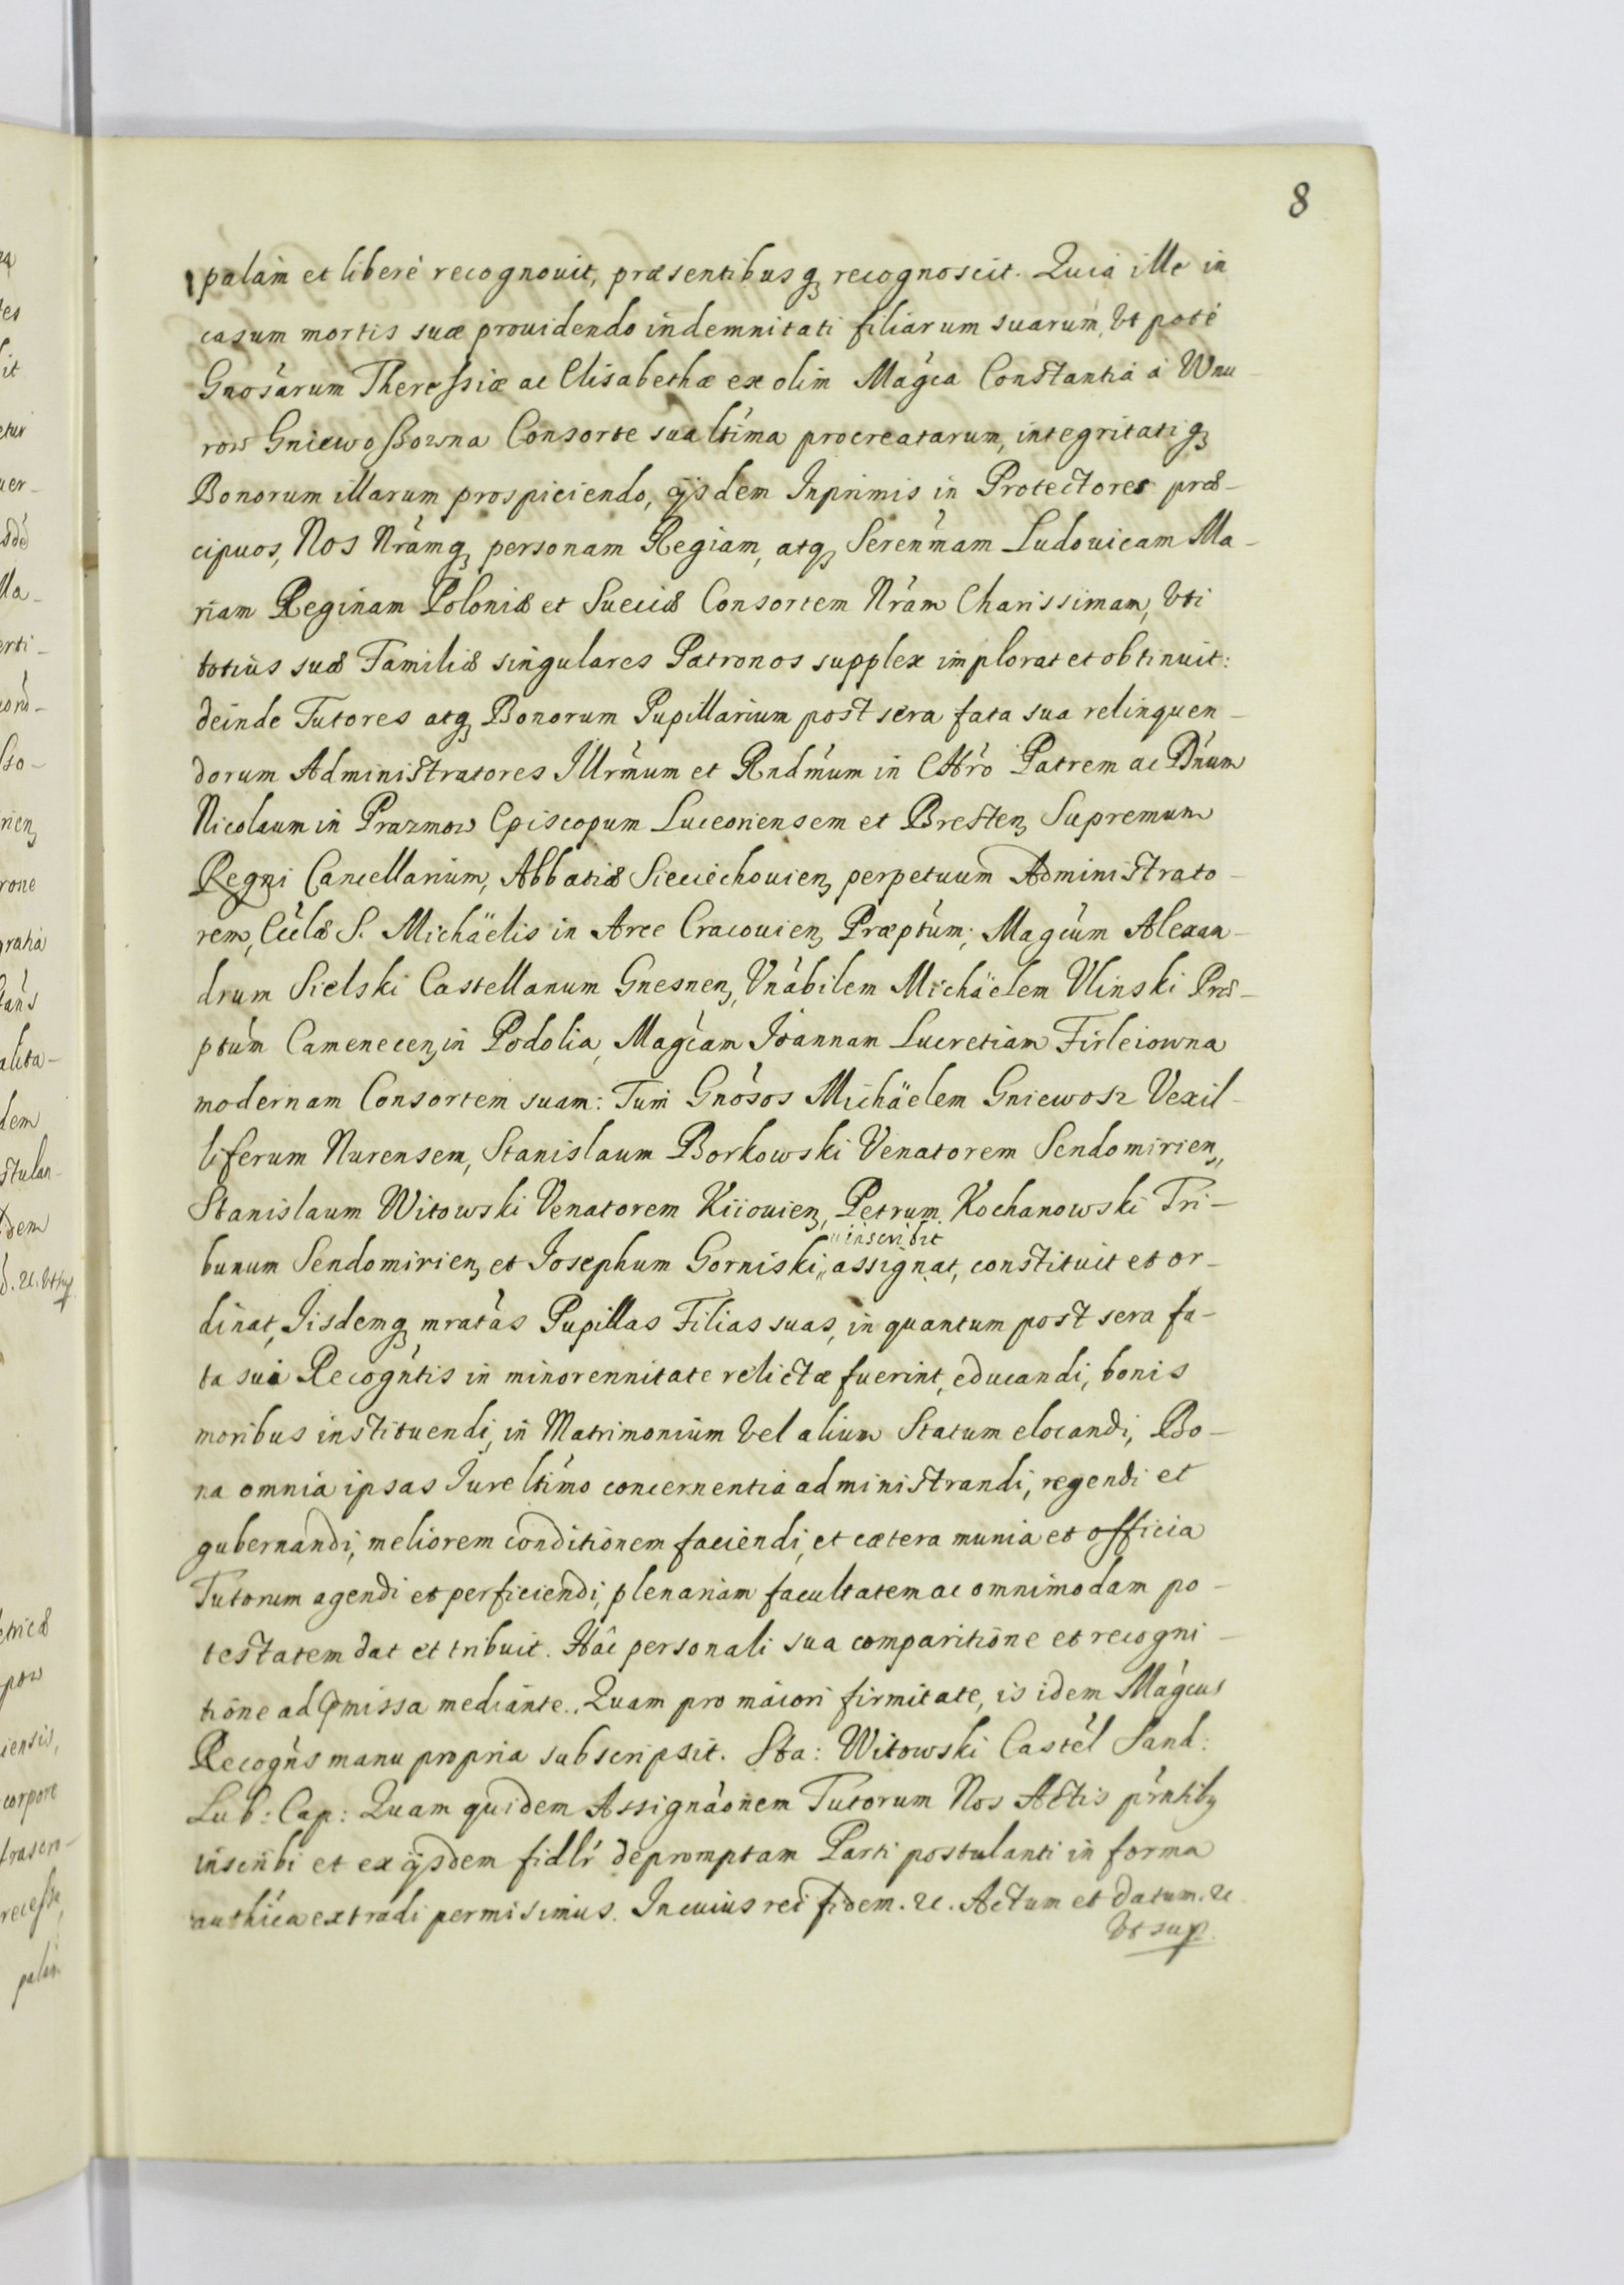 8
palam et liberè recognouit, præsentibusq; recognoscit. Quia ille in
casum mortis suæ prouidendo indemnitati filiarum suarum, Vt potè
Gnosarum Theressiæ ac Elisabethæ ex olim Magca Constantia à Wnu-
row Gniewoßowna Consorte sua ltima procreatarum, integritatiq;
Bonorum illarum prospiciendo, ijsdem Inprimis in Protectores præ-
cipuos, Nos Nramq; personam Regiam, atq; Serenmam Ludouicam Ma-
riam Reginam Poloniæ et Sueciæ Consortem Nram Charissimam, Vti
totius suæ Familiæ singulares Patronos supplex implorat et obtinuit:
deinde Tutores atq; Bonorum Pupillarium post sera fata sua relinquen-
dorum Administratores Illrmum et Rndmum in Chro Patrem ac Dnum
Nicolaum in Prazmow Episcopum Luceoriensem et Bresten; Supremum
Regni Cancellarium, Abbatiæ Sieciechouien; perpetuum Administrato-
rem, Ecclæ S. Michäelis in Arce Cracouien; Præptum; Magcum Alexan-
drum Sielski Castellanum Gnesnen; Vnabilem Michäelem Vlinski Præ-
ptum Camenecen; in Podolia, Magcam Ioannam Lucretiam Firleiowna
modernam Consortem suam: Tum Gnosos Michäelem Gniewosz Vexil-
liferum Nurensem, Stanislaum Borkowski Venatorem Sendomirien;
Stanislaum Witowski Venatorem Kiiouien; Petrum Kochanowski Tri-
"inscribit
bunum Sendomirien; et Iosephum Gorniski," assignat, constituit et or-
dinat, Iisdemq; mratas Pupillas Filias suas, in quantum post sera fa-
ta sui Recogntis in minorennitate relictæ fuerint, educandi, bonis
moribus instituendi, in Matrimonium Vel alium Statum elocandi, Bo-
na omnia ipsas Iure ltimo concernentia administrandi, regendi et
gubernandi, meliorem conditionem faciendi, et cætera munia et officia
Tutorum agendi et perficiendi, plenariam facultatem ac omnimodam po-
testatem dat et tribuit. Hâc personali sua comparitione et recogni-
tione ad p̃missa mediante. Quam pro maiori firmitate, is idem Magcus
Recogns manu propria subscripsit. Sta: Witowski Castel Sand:
Lub: Cap: Quam quidem Assignaonem Tutorum Nos Actis prntib9
inscribi et ex ijsdem fidlr depromptam Parti postulanti in forma
authica extradi permisimus. In cuius rei fidem. &c. Actum et datum. &c
Vt sup.